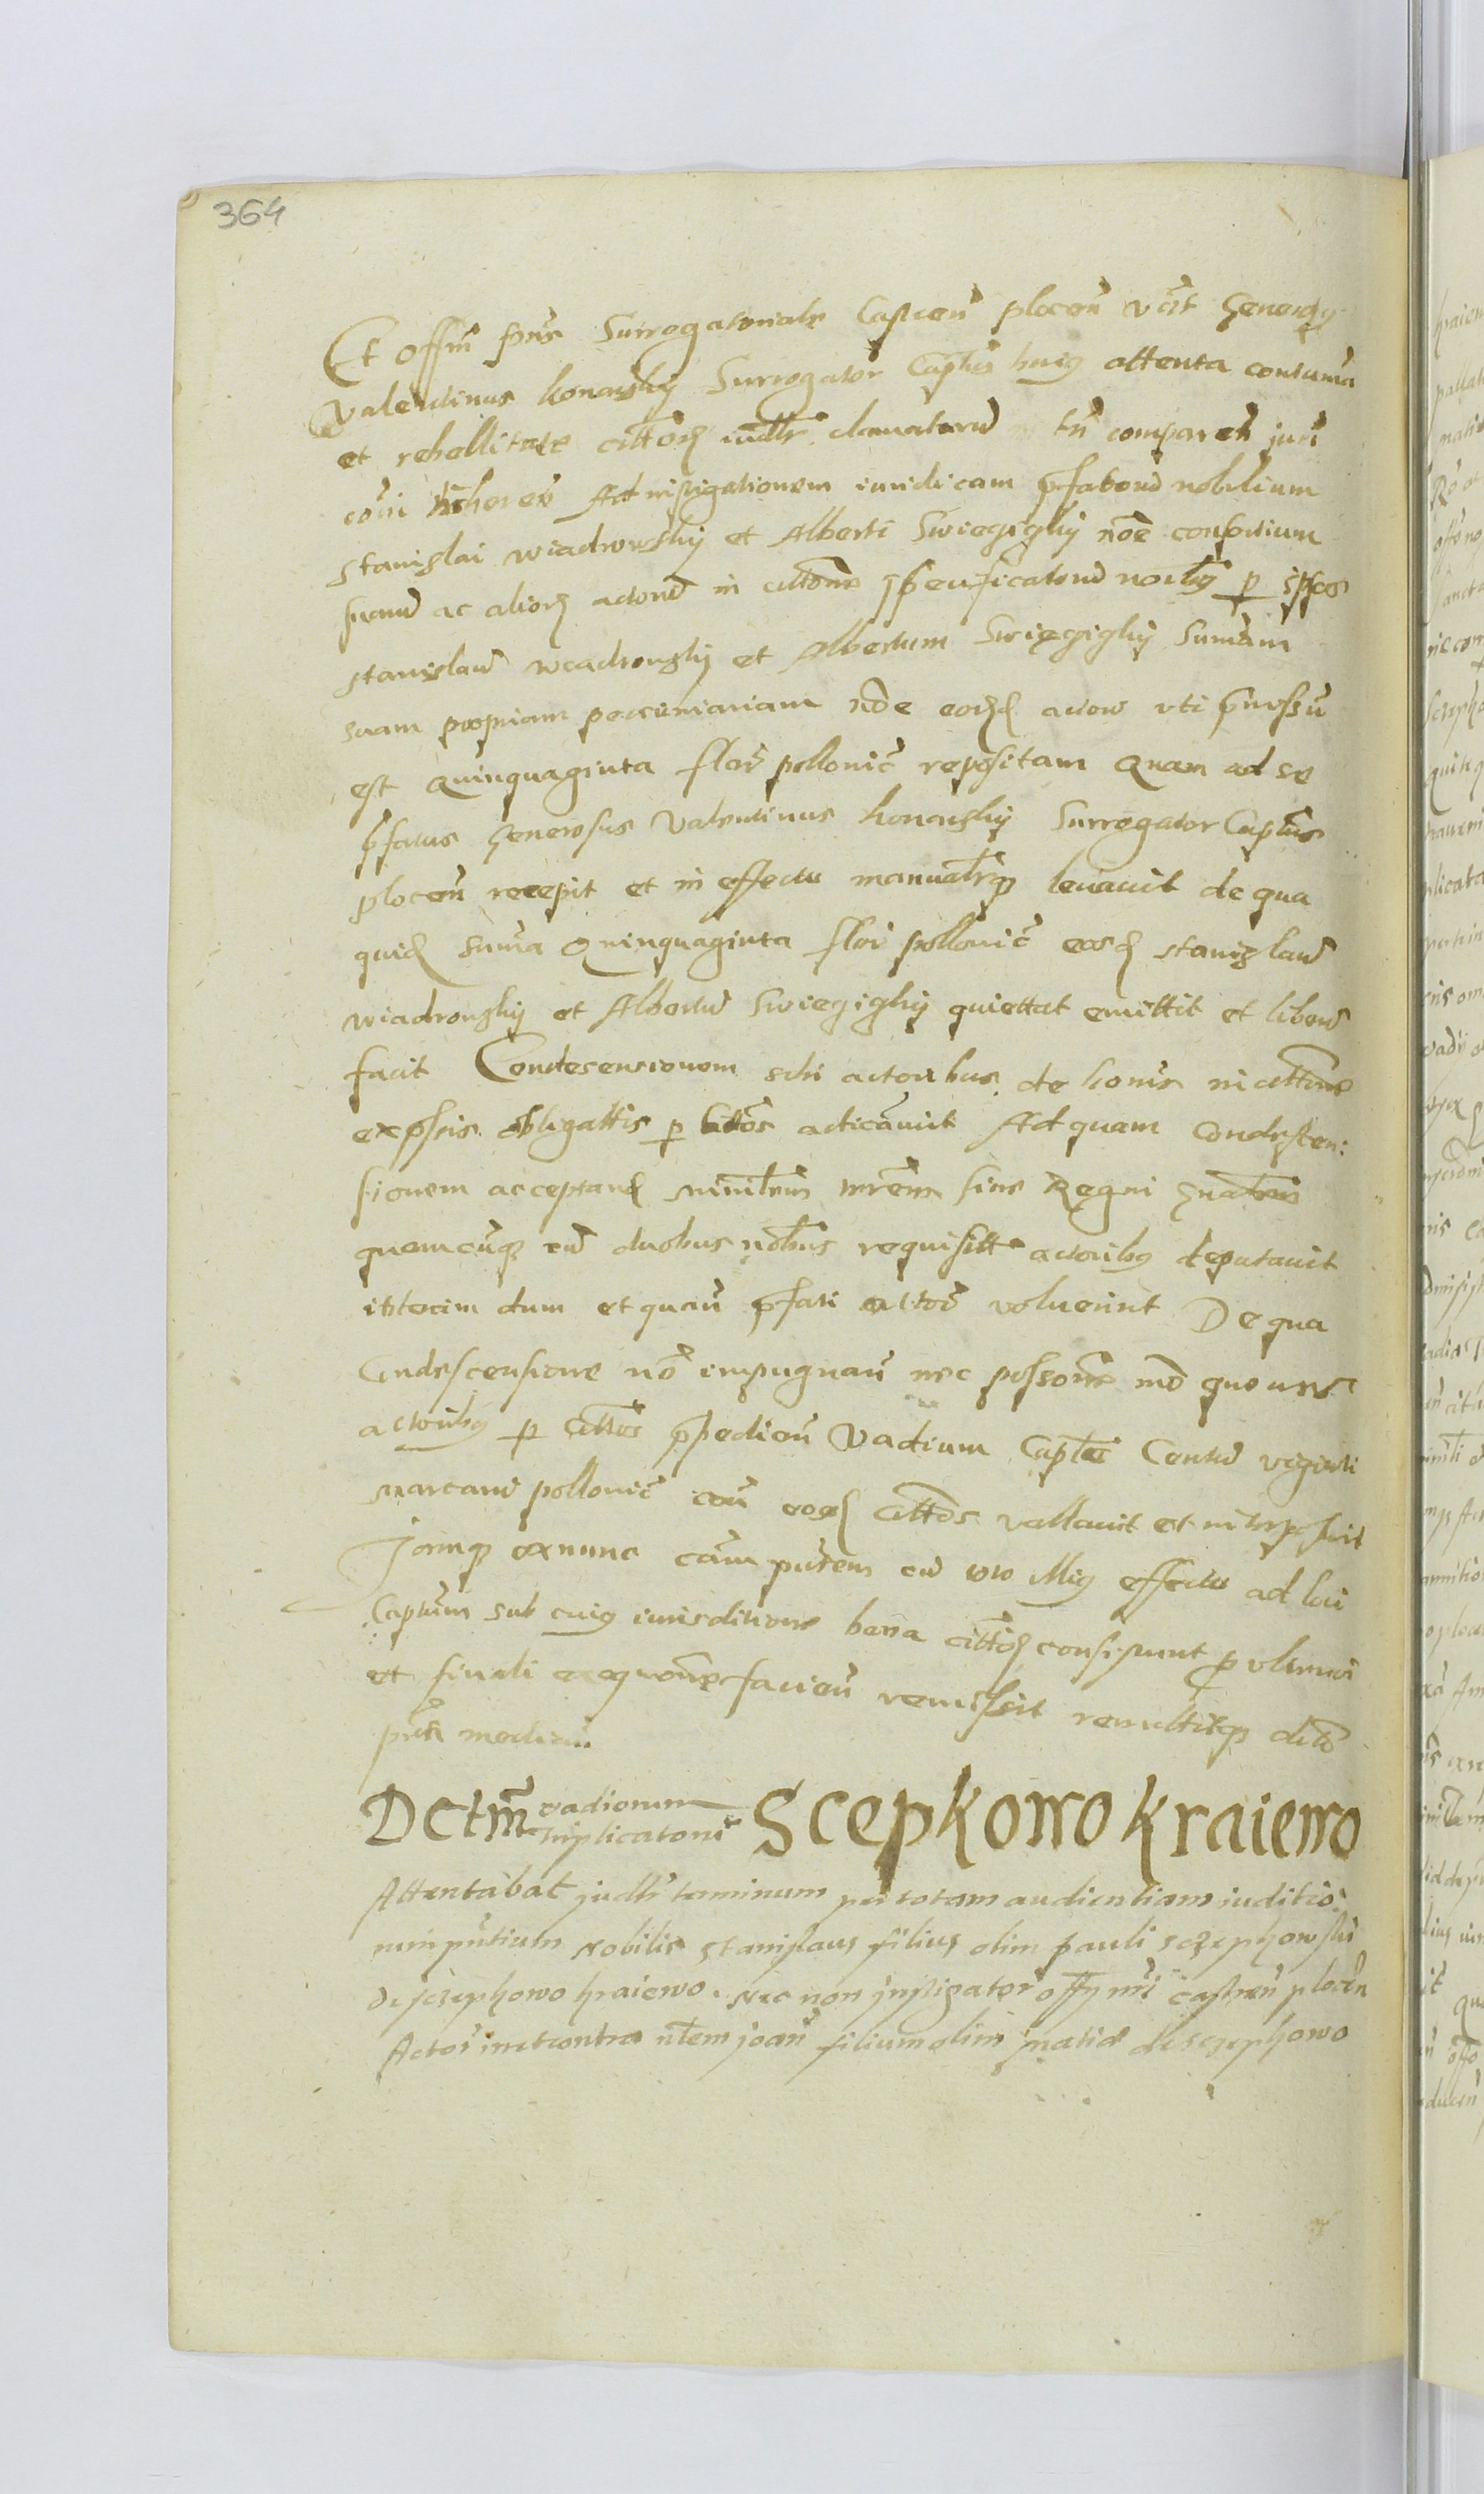 364
Et offm pns Surrogatoriale Castren plocen vɜt Generosus
Valentinus konarskij Surrogator Captus huiq attenta contuma
et rebellitate cittorz iudlr clamatorum tn comparen juri
Ad instigationem iuridicam pfatorum nobilium
Stanislai wiadrowskij et Alberti Swiezigskij noe consortium
suarum ac aliorz actorum in cittone specificatorum p ipsos
stanislaum wiadrowskij et Albertum Swiezigskij Sumam
suam propriam pecuniariam noe actorum uti pmissu
est quinquaginta flor pollonic repositam quam ad se
pfatus Generosus Valentinus konarskij Surrogator Captus
plocen recepit et in effectu manualrq levavit de qua
quid suma Quinquaginta flor pollonic eosd stanislaum
wiadrowskij et Albertum Swiezigskij quiettat emittit et liberum
facit Condescensionem actoribus de bonis in cittone
expssis obligattis p cittos adicavit Ad quam condescen:
sionem acceptand ministrm trem sive Regni gnalem
quemcunq cum duobus nobbus requisitt actoribq deputavit
ibidem dum et quan pfati actor voluerint De qua
Condescensione no impugnan nec possone
actoribq p cittos ppedien Vadium Captle Centum viginti
marcarum pollonic eosd cittos vallavit et interposuit
Jamq exnunc cam pntem cum oio illiq effectu ad loci
Captum sub cuiq iurisditione bona cittorz consistunt p ultimari
et finali exeqntione facien remissit remittitq dicto
pnti median
Dctm vadiorum
triplicatoni Scepkowo kraiewo
Attentabat judlr terminum per totam audientiam iuditio:
rum pntium Nobilis Stanislaus filius olim pauli sczepkowski
de sczepkowo kraiewo. Nec non jnstigator offy nri castren plocen
Actor in et contra nlem joan filium olim de sczepkowo